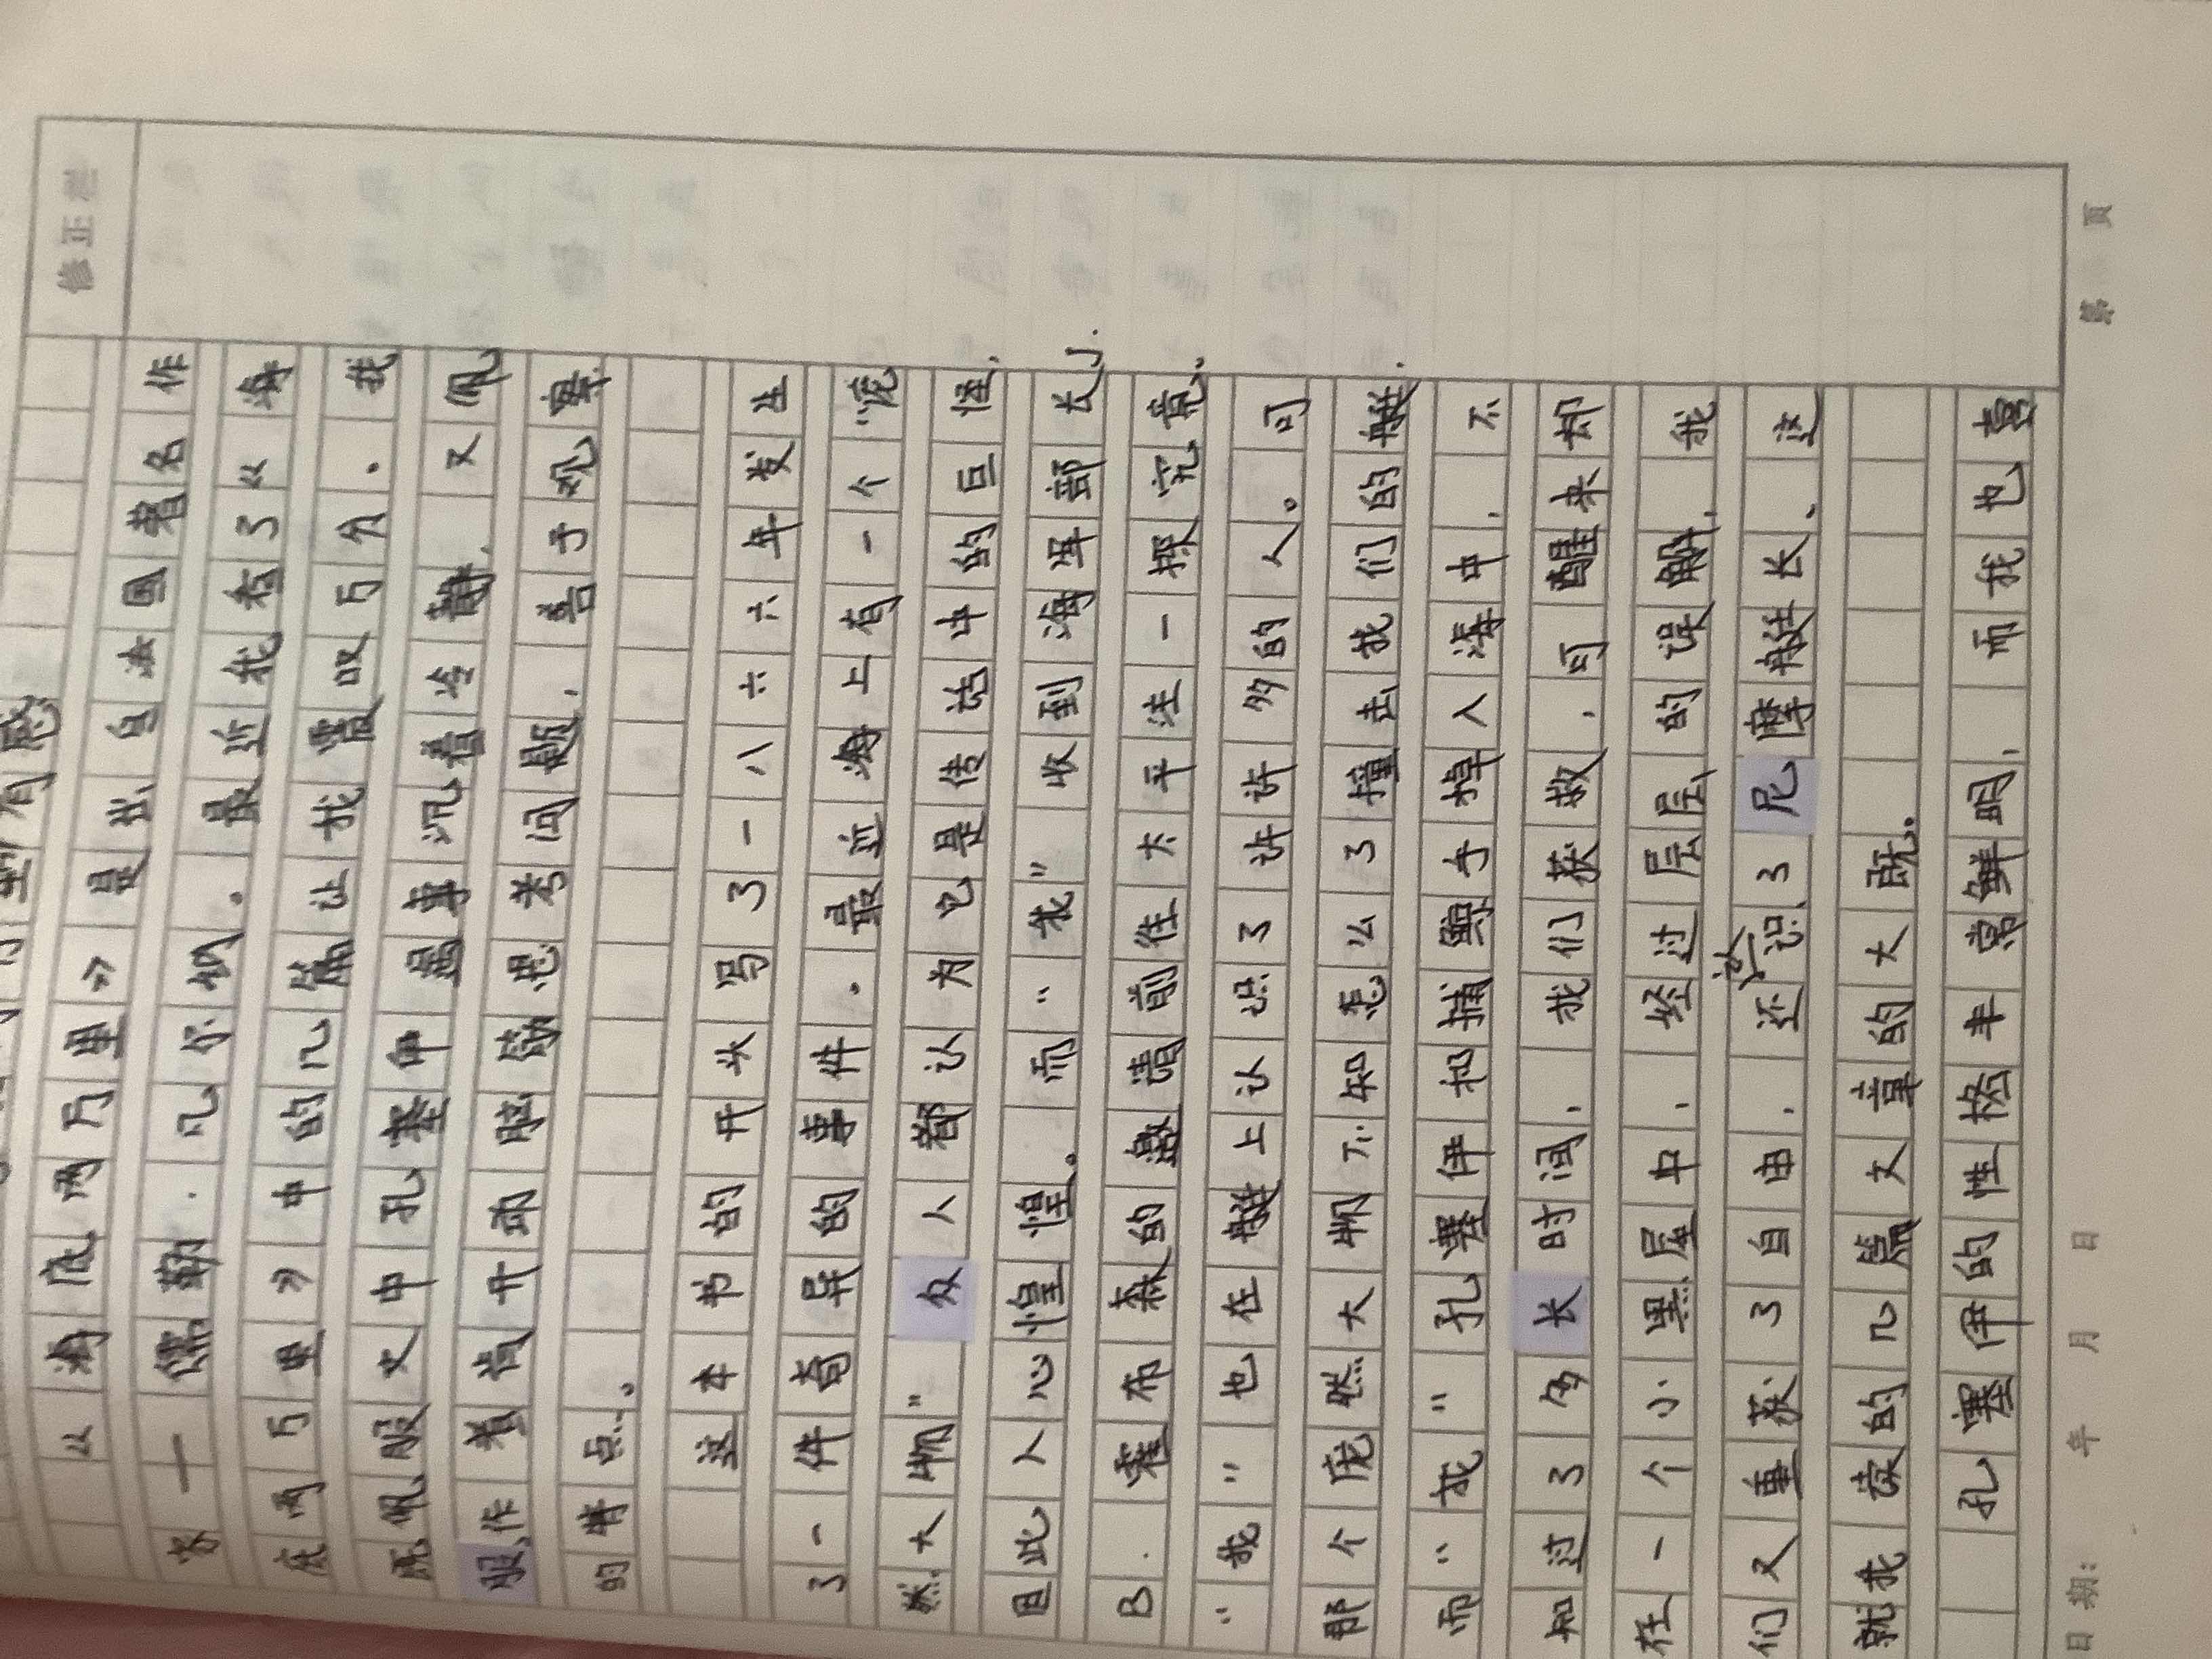 里》有感
《海底两万里》是出自法国著名作
家一儒勒.凡尔纳。最近我看了《海
底两万里》中的几篇让我震叹万分。我
既佩服文中孔塞伊遇事沉着冷静,又佩
服,作着肯开动脑筋思考问题,善于观察
的特点。
这本书的开头写了一八六六年发生
了一件奇异的事件。最近海上有一个“庞
然大物”众人都认为它是传话中的巨怪,
因此人心惶惶。而“我”收到海军部长J.
B.霍布森的邀请前往太平洋一探究竟.
“我”也在艇上认识了许许多的人。可
那个庞然大物不知怎么了撞击我们的艇.
而“我”孔塞伊和捕鲸手掉人海中,不
知过了多长时间,我们获救,可醒来却
在一个小黑屋中,经过层层的误解,我
们又重获了自由,还认识了尼摩艇长。这
就我读的几篇文章的大既。
孔塞伊的性格丰常鲜明,而我也喜
修正栏
日期: 年 月 日
第 页